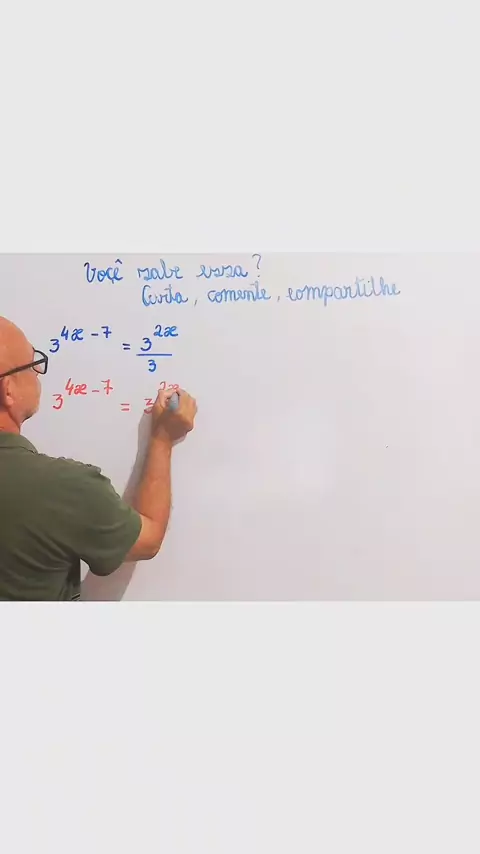 Você sabe essa?
Curta, comente, compartilhe
3^{4x-7} = \frac{3^{2x}}{3}
3^{4x-7} = 3^{2x}